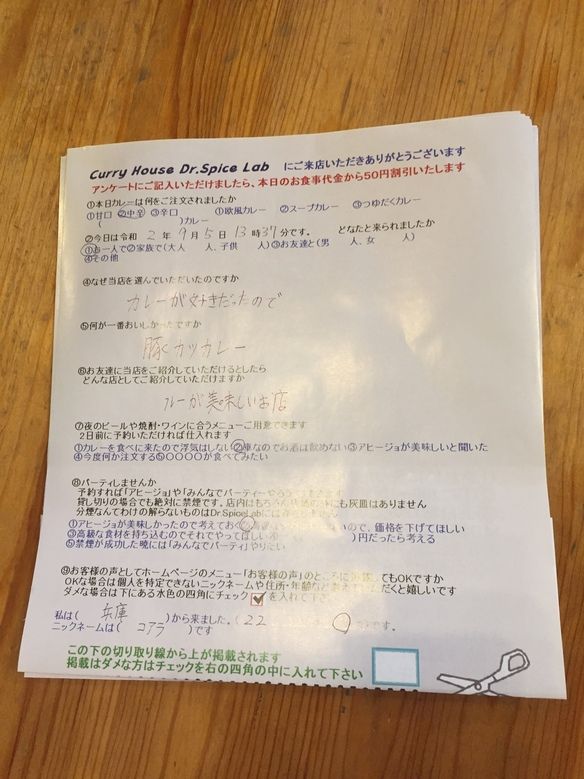 Curry House Dr.Spice Lab にご来店いただきありがとうございます
アンケートにご記入いただけましたら、本日のお食事代金から50円割引いたします
①本日カレーは何をご注文されましたか
①甘口 ②中辛 ③辛口 ①欧風カレー ②スープカレー ③つゆだくカレー
( )カレー
②今日は令和 2 年 9 月 5 日 13 時 37 分です。 どなたと来られましたか
①お一人で②家族で(大人 人、子供 人)③お友達と(男 人、女 人)
④その他
④なぜ当店を選んでいただいたのですか
カレーが好きだったので
⑤何が一番おいしかったですか
豚カツカレー
⑥お友達に当店をご紹介していただけるとしたら
どんな店としてご紹介していただけますか
ルーが美味しいお店
⑦夜のビールや焼酎・ワインに合うメニューご用意できます
2日前に予約いただければ仕入れます
①カレーを食べに来たので浮気はしない②車なのでお酒は飲めない③アヒージョが美味しいと聞いた
④今度何か注文する⑤〇〇〇〇が食べてみたい
⑧パーティしませんか
予約すれば「アヒージョ」や「みんなでパーティー
貸し切りの場合でも絶対に禁煙です。店内はもちろん にも灰皿はありません
分煙なんてわけの解らないものはDr.SpiceLabには
①アヒージョが美味しかったので考えておく ので、価格を下げてほしい
③高級な食材を持ち込むのでそれでやってほしい )円だったら考える
⑤禁煙が成功した暁には「みんなでパーティ」やりたい
⑨お客様の声としてホームページのメニュー「お客様の声」のところに てもOKですか
OKな場合は個人を特定できないニックネームや住所・年齢など だくと嬉しいです
ダメな場合は下にある水色の四角にチェック を入れて下さい
私は( 兵庫 )から来ました。( 22 です。
ニックネームは( コアラ )です
この下の切り取り線から上が掲載されます
掲載はダメな方はチェックを右の四角の中に入れて下さい